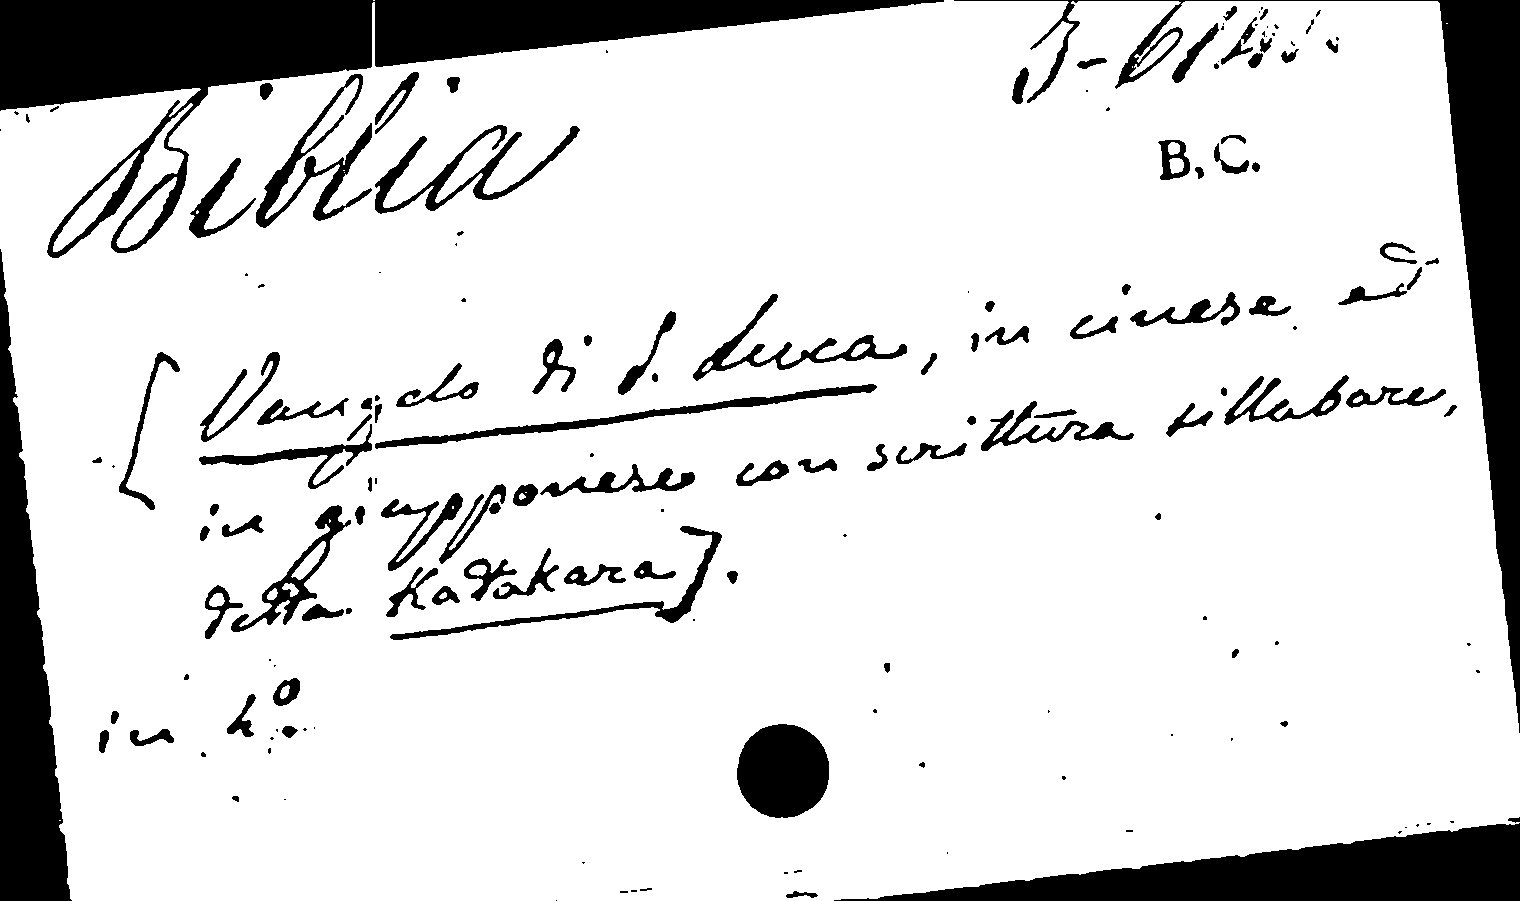 Biblia
B.C.
[Vangelo di S. Luca, in cinese ed
in giapponese con scrittura sillabare,
detta Katakara].
in 4º.